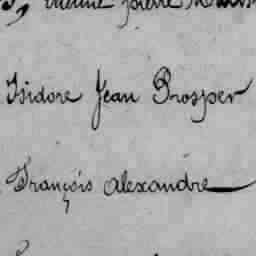 pierre
Isidore Jean Prosper
François alexandre